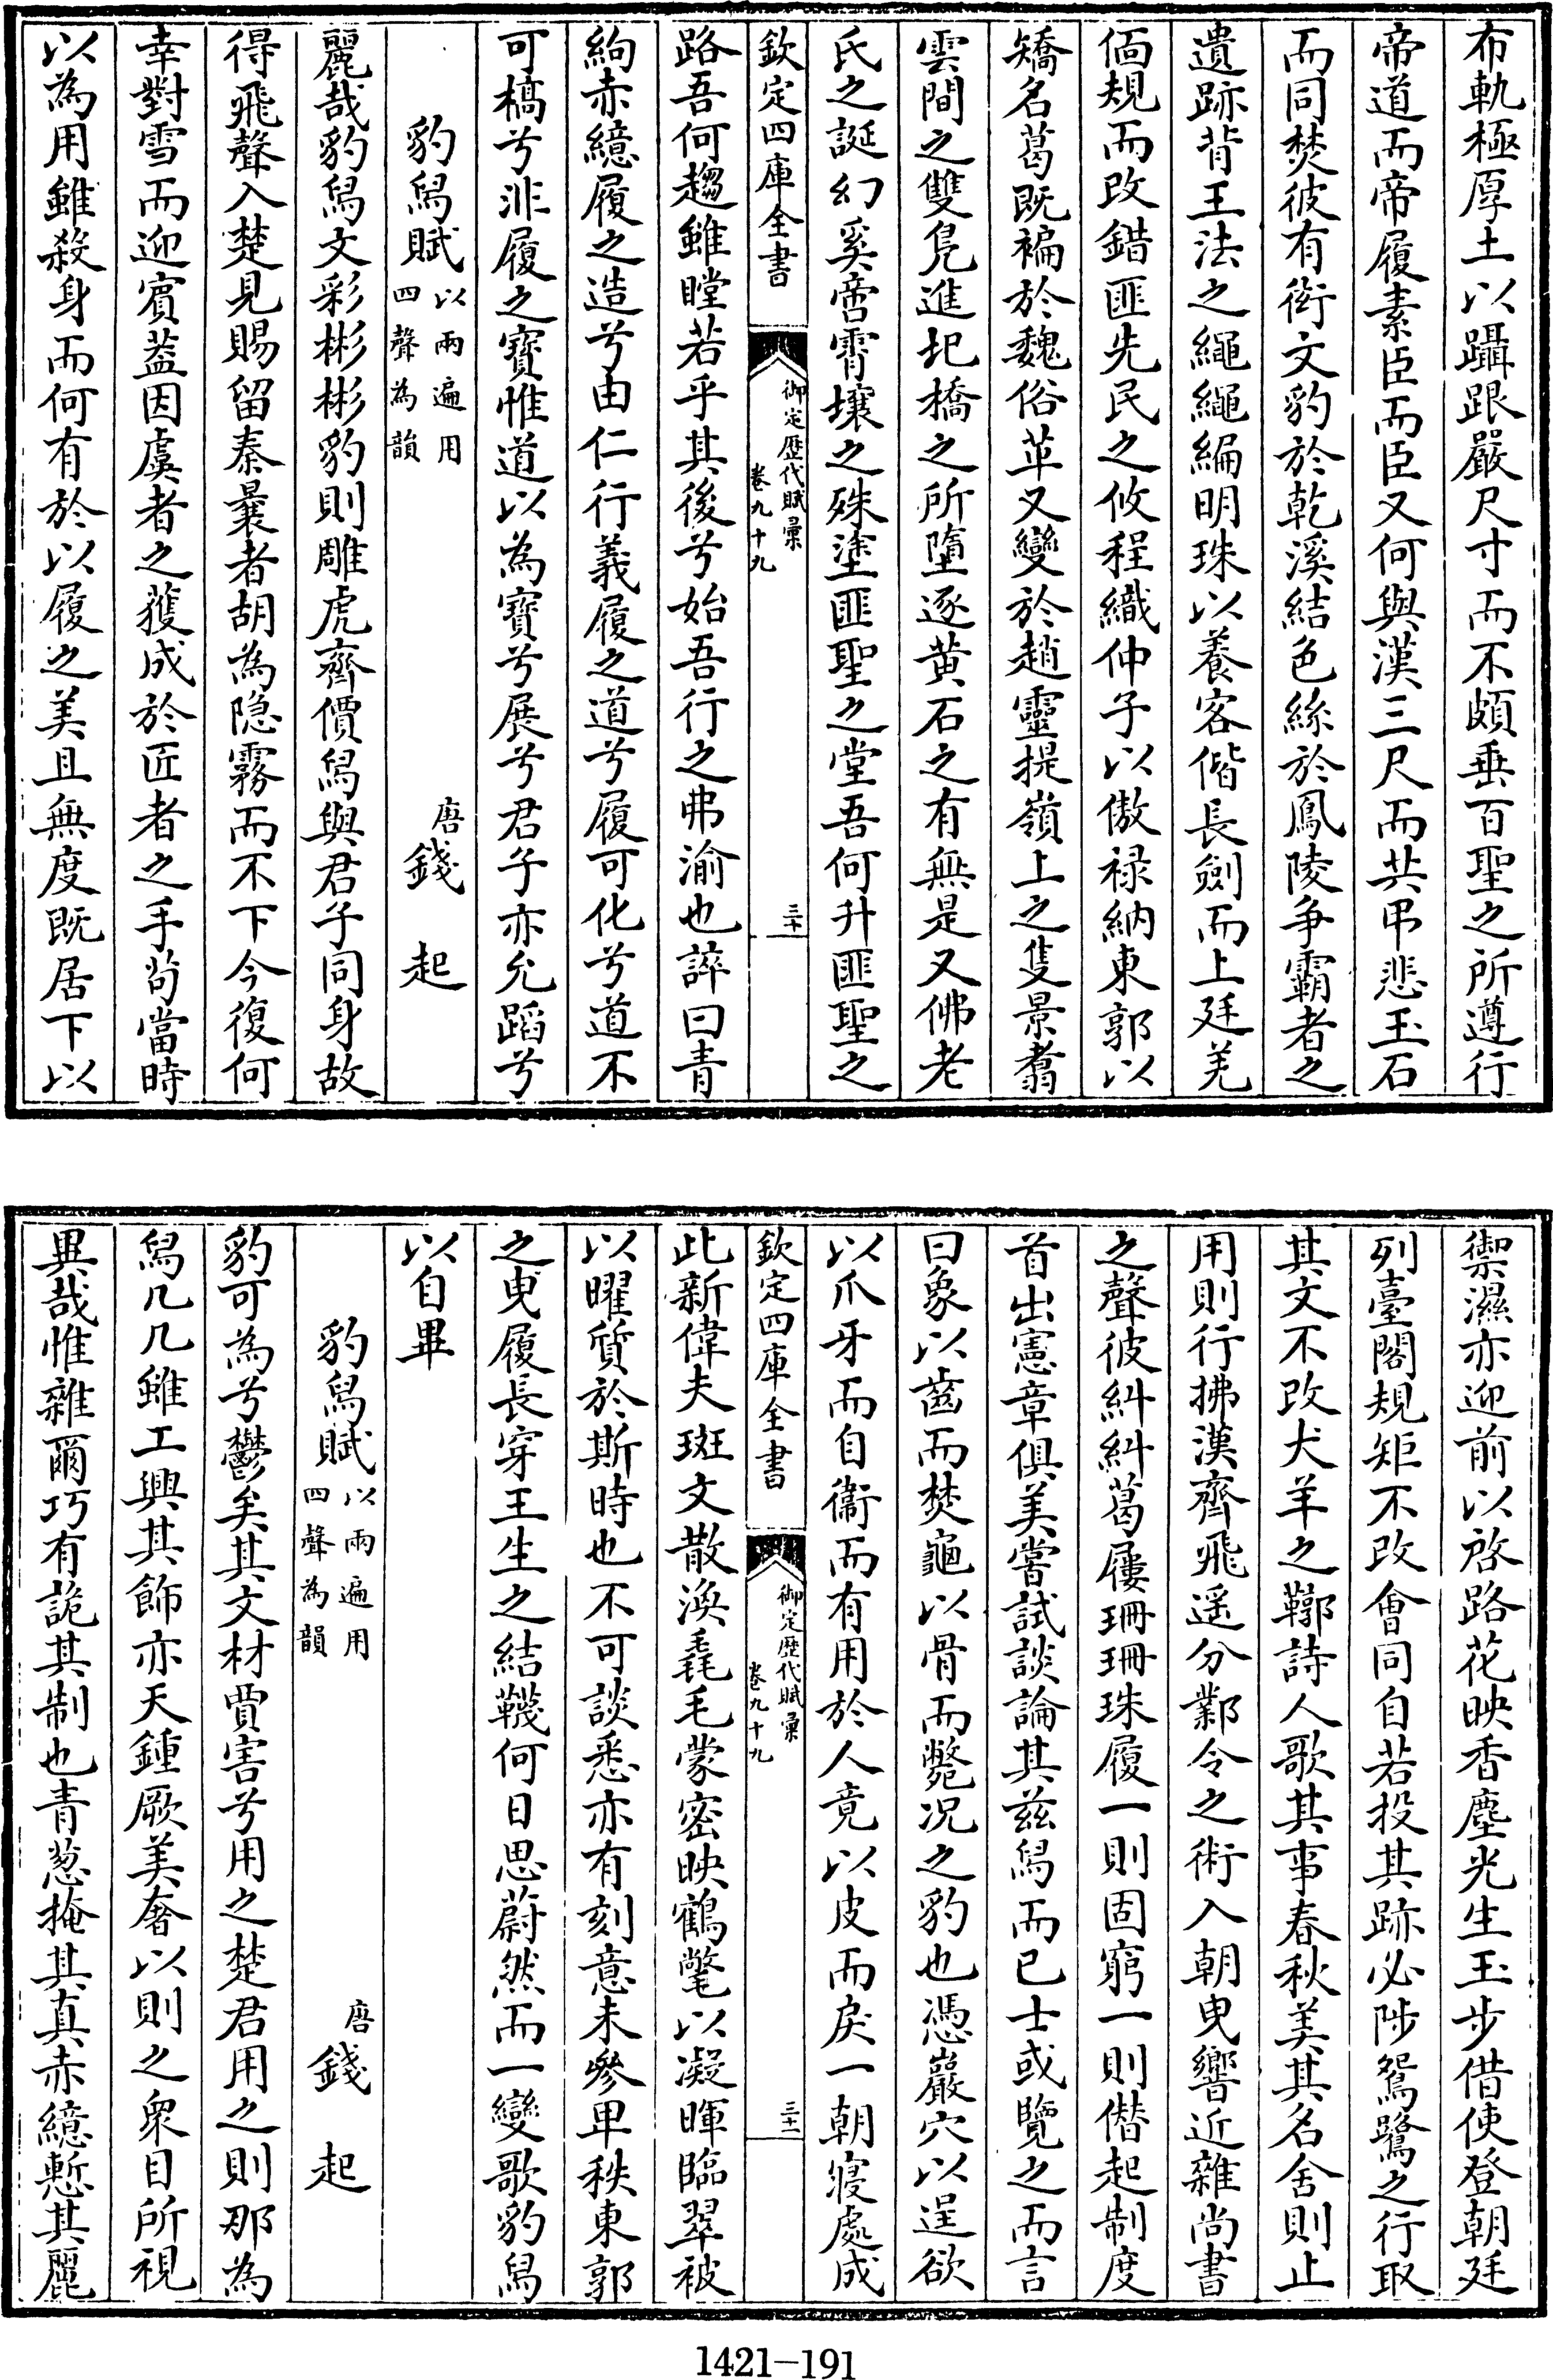 布軌極厚土以躡跟嚴尺寸而不頗垂百聖之所遵行
帝道而帝履素臣而臣又何與漢三尺而共弔悲玉石
而同焚彼有衒文豹於乾溪結色絲於鳳陵爭霸者之
遺跡背王法之繩繩編明珠以養客偕長劍而上廷羌
偭規而改錯匪先民之攸程織仲子以傲祿納東郭以
矯名葛既褊於魏俗革又變於趙靈提嶺上之隻景翥
雲間之雙鳧進圯橋之所墮逐黄石之有無是又佛老
氏之誕幻奚啻霄壤之殊塗匪聖之堂吾何升匪聖之
欽定四庫全書
御定歴代賦彙
卷九十九
三十
路吾何趨雖瞠若乎其後兮始吾行之弗渝也誶曰青
絇赤繶履之造兮由仁行義履之道兮履可化兮道不
可槁兮非履之寶惟道以為寶兮展兮君子亦允蹈兮
豹舄賦
以兩遍用
四聲為韻
唐
錢起
麗哉豹舄文彩彬彬豹則雕虎齊價舄與君子同身故
得飛聲入楚見賜留秦曩者胡為隠霧而不下今復何
幸對雪而迎賓葢因虞者之獲成於匠者之手茍當時
以為用雖殺身而何有於以履之美且無度既居下以
禦濕亦迎前以啓路花映香塵光生玉步借使登朝廷
列臺閣規矩不改會同自若投其跡必陟鴛鷺之行取
其文不改犬羊之鞹詩人歌其事春秋美其名舍則止
用則行拂漢齊飛遥分鄴令之術入朝曳響近雜尚書
之聲彼糾糾葛屨珊珊珠履一則固窮一則僭起制度
首出憲章俱美嘗試談論其兹舄而已士或覽之而言
曰象以齒而焚龜以骨而斃况之豹也憑巖穴以逞欲
以爪牙而自衞而有用於人竟以皮而戾一朝寢處成
欽定四庫全書
御定歴代賦彙
卷九十九
三十一
此新偉夫斑文散渙毳毛蒙密映鶴氅以凝暉臨翠被
以曜質於斯時也不可談悉亦有刻意未參卑秩東郭
之曳履長穿王生之結韈何日思蔚然而一變歌豹舄
以自畢
豹舄賦
以兩遍用
四聲為韻
唐
錢起
豹可為兮鬱矣其文材賈害兮用之楚君用之則那為
舄几几雖工興其飾亦天鍾厥美奢以則之衆目所視
異哉惟雜爾巧有詭其制也青葱掩其真赤繶慙其麗
1421-191